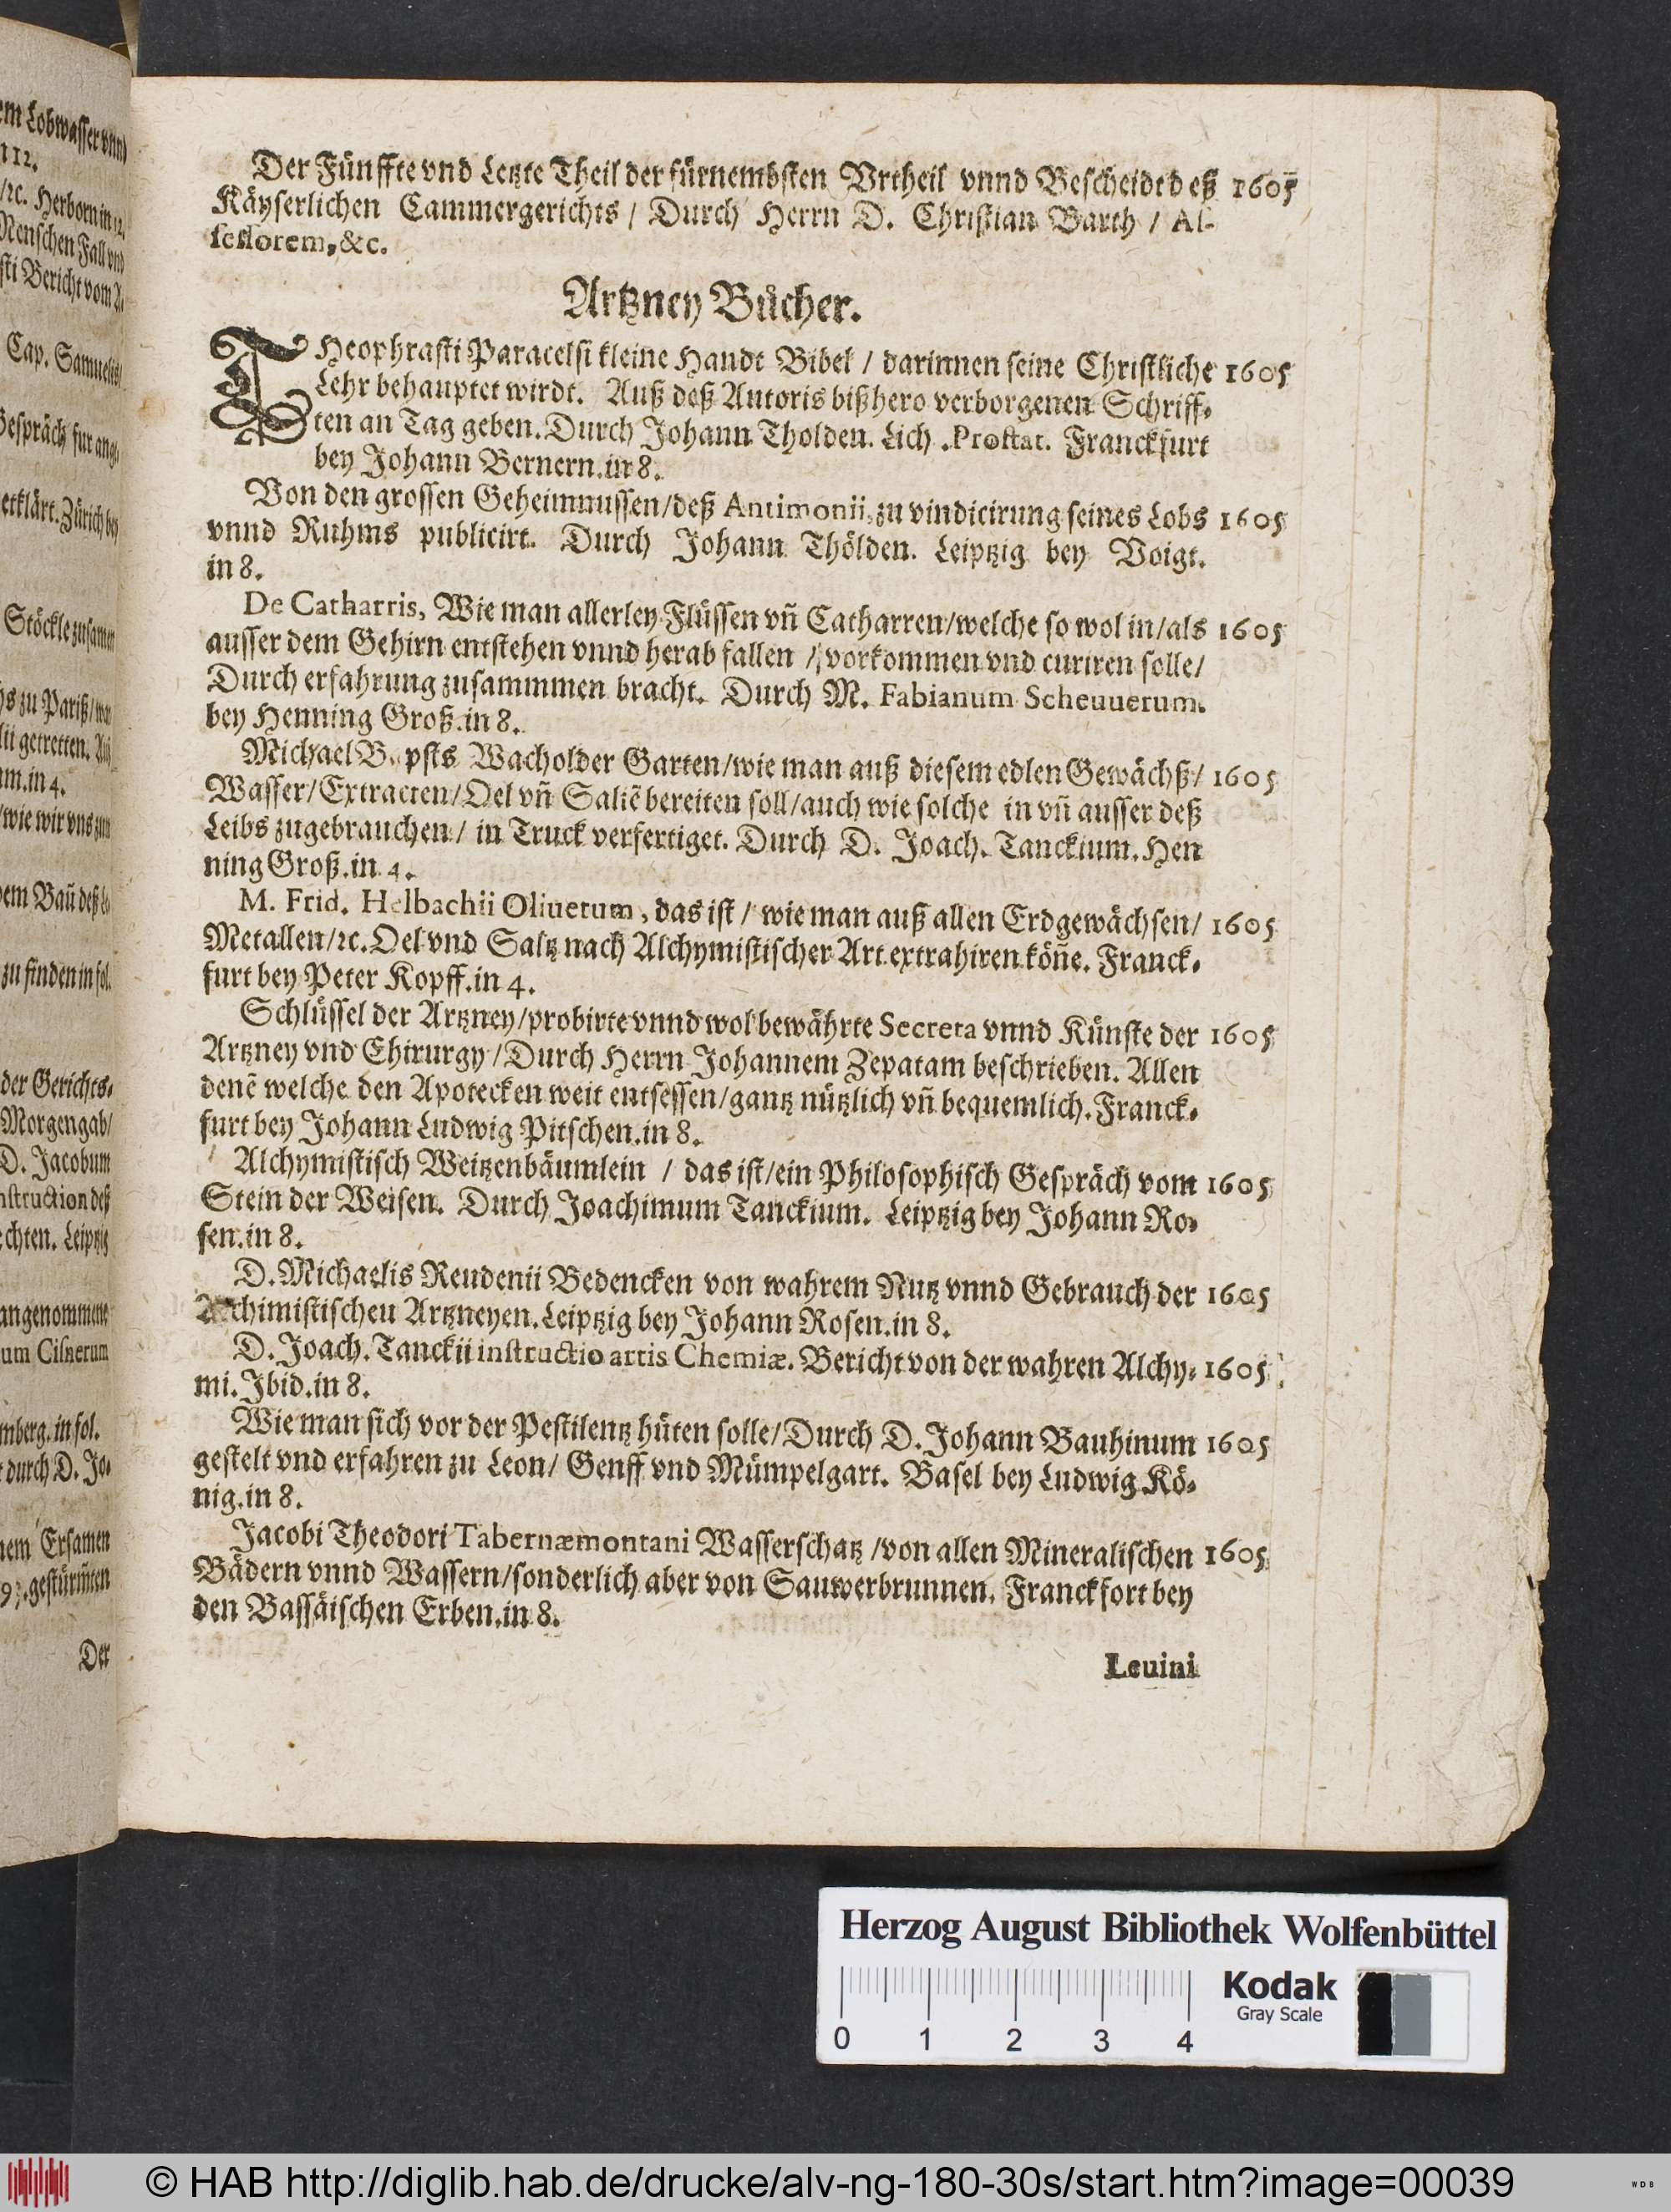 em Lobwasser vnnd
n 12.
/ꝛc. Herborn in 12.
Menschen Fall vnd
sti Bericht vom A.
Cap. Samuelis/
Gespräch fur ang.
erklärt. Zürich bey
Stöckle zusamen
hs zu Pariß/
lii getretten.
m. in 4.
/wie wir vns zum
dem Bañ deß
zu finden in fol.
der Gerichts⸗
Morgengab/
D. Jacobum
nstruction deß
echten. Leiptzig
angenommene
um Cisnerum
mberg. in fol.
t durch D. Jo⸗
nem Ersamen
gestürmten
Der
Der Fünffte vnd Letzte Theil der fürnembsten Vrtheil vnnd Bescheidt deß 1605
Käyserlichen Cammergerichts / Durch Herrn D. Christian Barth / As-
sessorem, &c.
Artzney Bücher.
THeophrasti Paracelsi kleine Handt Bibel / darinnen seine Christliche 1605
Lehr behauptet wirdt. Auß deß Autoris bißhero verborgenen Schriff⸗
ten an Tag geben. Durch Johann Tholden. Lich . Prostat. Franckfurt
bey Johann Bernern. in 8.
Von den grossen Geheimnussen/deß Antimonii, zu vindicirung seines Lobs 1605
vnnd Ruhms publicirt. Durch Johann Thölden. Leiptzig bey Voigt.
in 8.
De Catharris, Wie man allerley Flüssen vñ Catharren/welche so wol in/als 1605
ausser dem Gehirn entstehen vnnd herab fallen / vorkommen vnd curiren solle/
Durch erfahrung zusammmen bracht. Durch M. Fabianum Scheuuerum.
bey Henning Groß. in 8.
Michael B psts Wacholder Garten/wie man auß diesem edlen Gewächß/ 1605
Wasser/Extracten/Oel vñ Saltẽ bereiten soll/auch wie solche in vñ ausser deß
Leibs zugebrauchen / in Truck verfertiget. Durch D. Joach. Tanckium. Hen
ning Groß. in 4.
M. Frid. Helbachii Oliuetum, das ist / wie man auß allen Erdgewächsen/ 1605
Metallen/ꝛc. Oel vnd Saltz nach Alchymistischer Art extrahiren köñe. Franck⸗
furt bey Peter Kopff. in 4.
Schlüssel der Artzney/probirte vnnd wol bewährte Secreta vnnd Künste der 1605
Artzney vnd Chirurgy/Durch Herrn Johannem Zepatam beschrieben. Allen
denẽ welche den Apotecken weit entsessen/gantz nützlich vñ bequemlich. Franck⸗
furt bey Johann Ludwig Pitschen. in 8.
Alchymistisch Weitzenbäumlein / das ist/ein Philosophisch Gespräch vom 1605
Stein der Weisen. Durch Joachimum Tanckium. Leiptzig bey Johann Ro⸗
sen. in 8.
D. Michaelis Reudenii Bedencken von wahrem Nutz vnnd Gebrauch der 1605
Alchimistischen Artzneyen. Leiptzig bey Johann Rosen. in 8.
D. Joach. Tanckii instructio artis Chemiæ. Bericht von der wahren Alchy⸗ 1605
mi. Ibid. in 8.
Wie man sich vor der Pestilentz hüten solle/Durch D. Johann Bauhinum 1605
gestelt vnd erfahren zu Leon/ Genff vnd Mümpelgart. Basel bey Ludwig Kö⸗
nig. in 8.
Jacobi Theodori Tabernæmontani Wasserschatz /von allen Mineralischen 1605
Bädern vnnd Wassern/sonderlich aber von Sauwerbrunnen. Franckfort bey
den Bassäischen Erben. in 8.
Leuini
Herzog August Bibliothek Wolfenbüttel
Kodak
Gray Scale
0 1 2 3 4
© HAB http://diglib.hab.de/drucke/alv-ng-180-30s/start.htm?image=00039
WDB